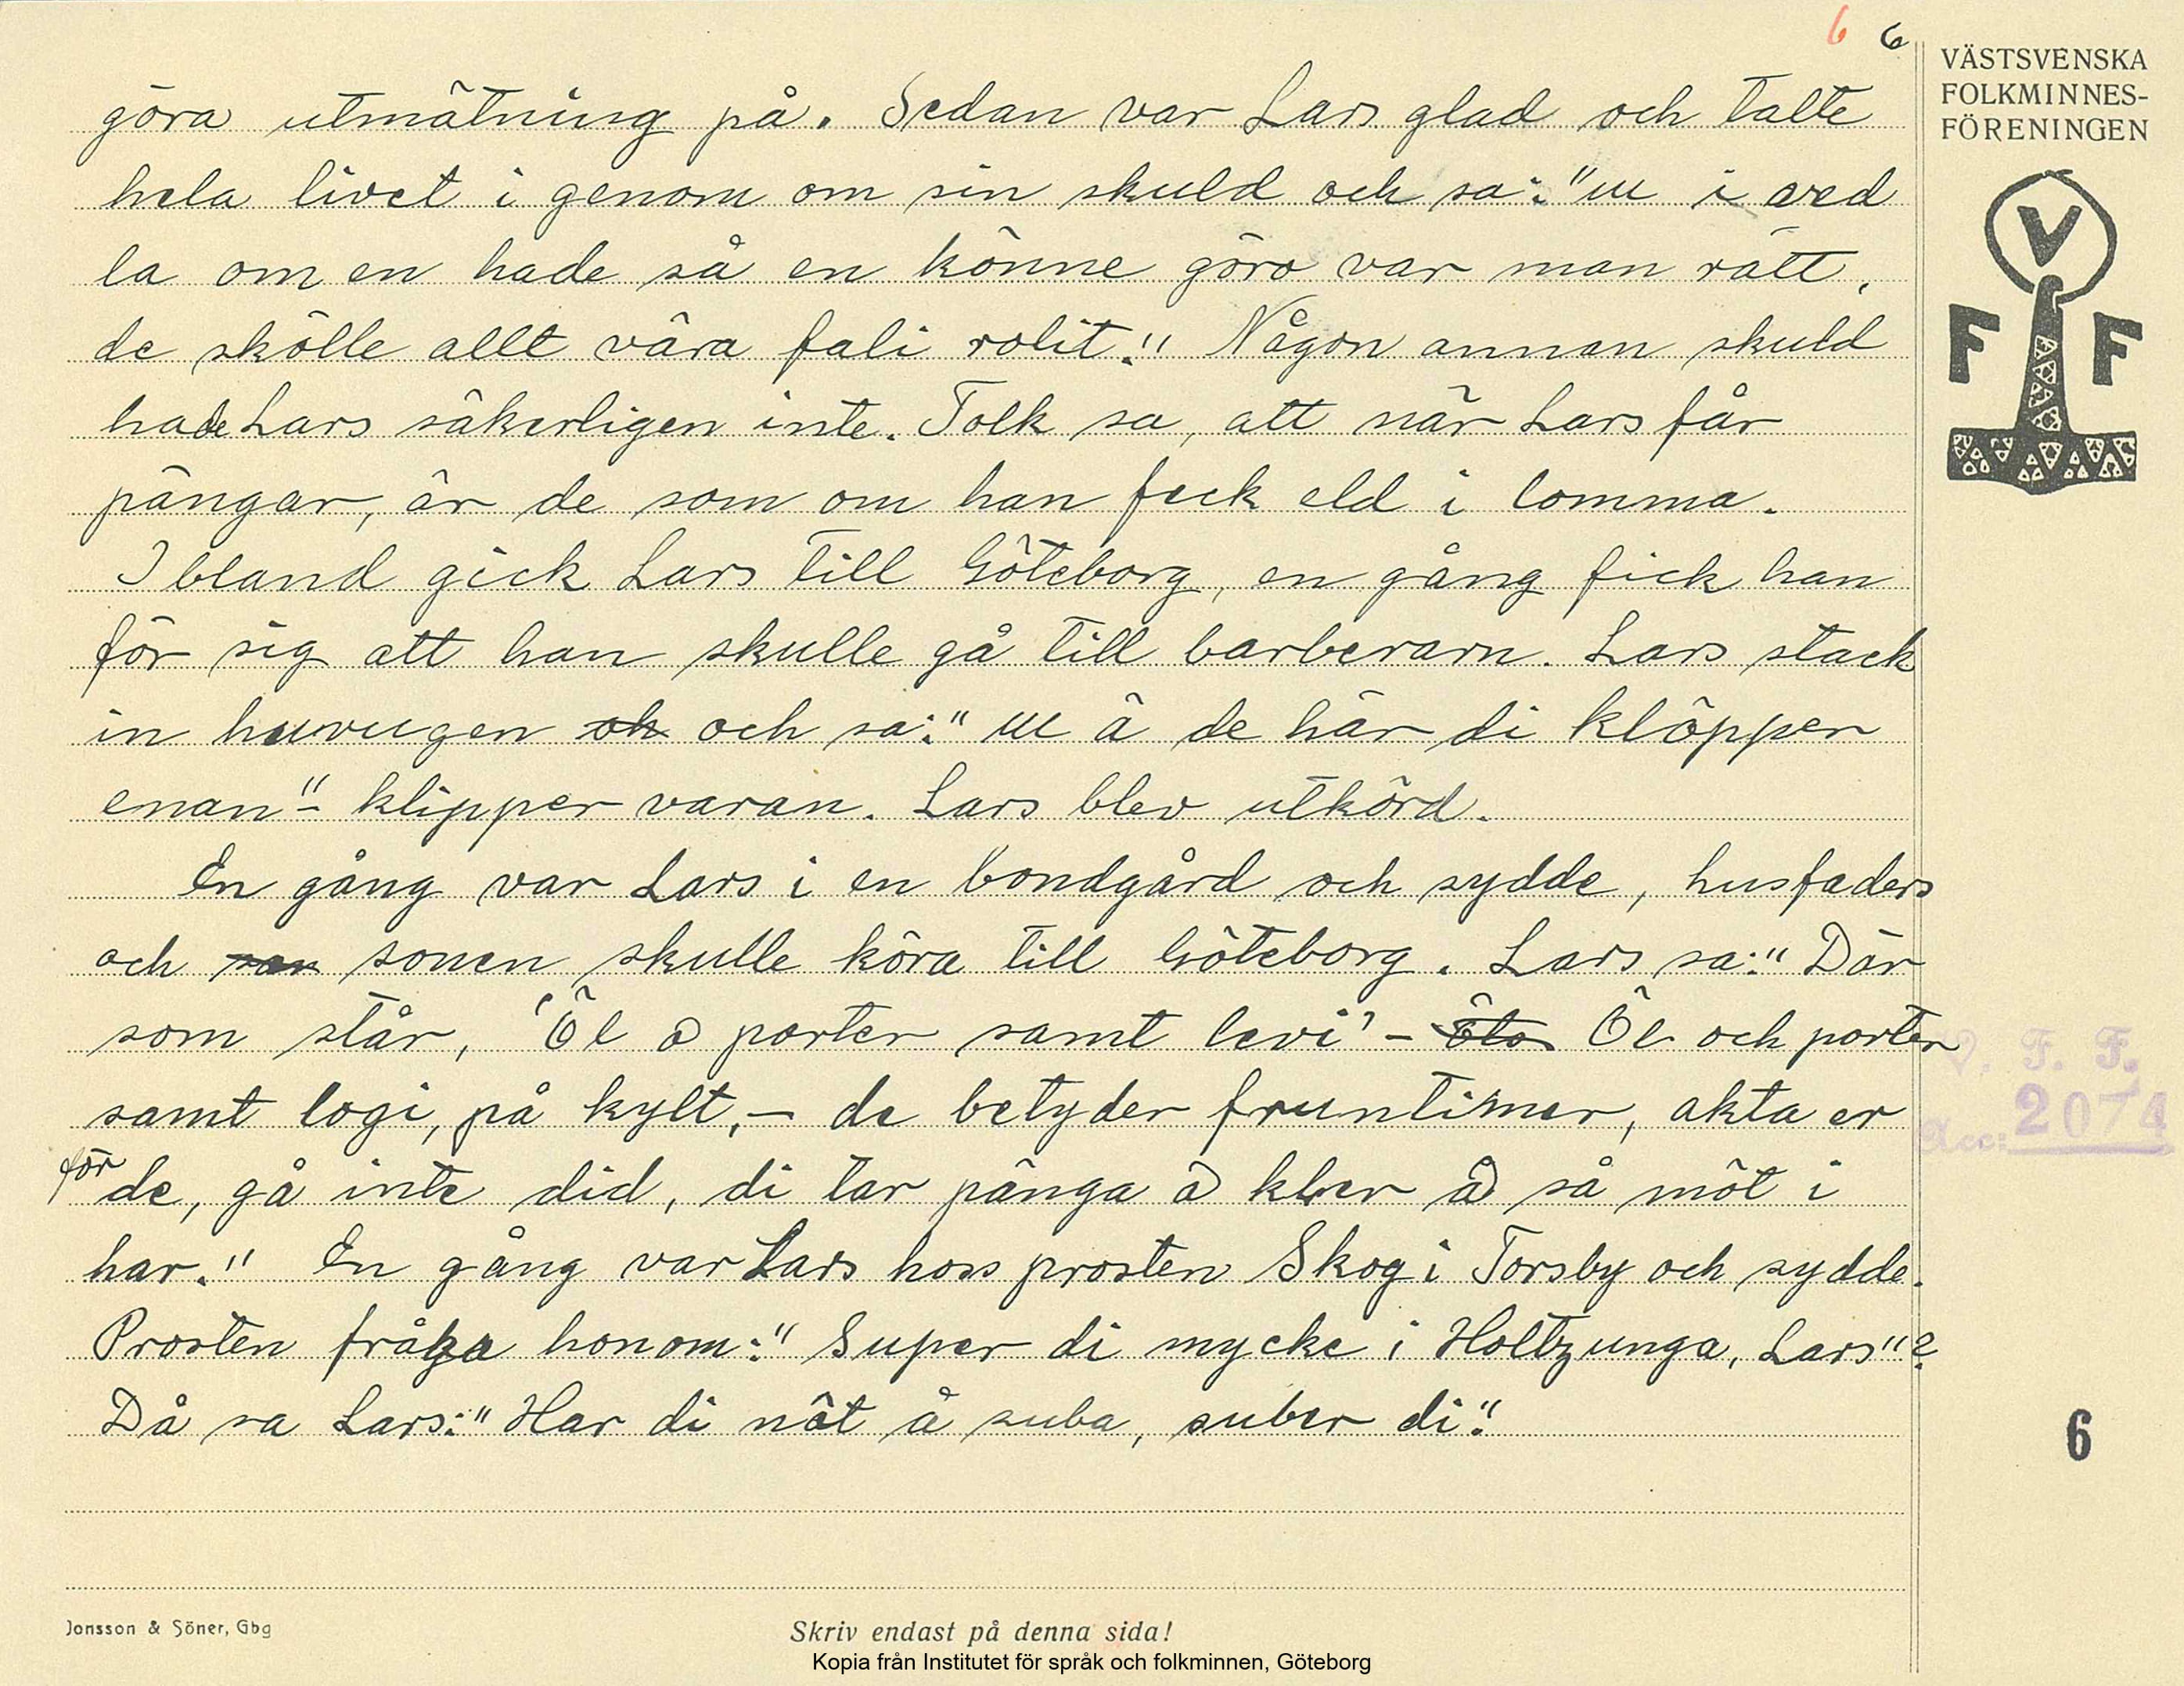 6 6
VÄSTSVENSKA
FOLKMINNES-
FÖRENINGEN
V
F F
göra utmätning på. Sedan var Lars glad och talte
hela livet i genom om sin skuld och sa: "m i
la om en hade så en könne göra var man rätt,
de skölle allt vära fali rolit." Någon annan skuld
hade Lars säkerligen inte. Folk sa, att när Lars får
pängar, är de som om han feck eld i lomma.
Ibland gick Lars till Göteborg, en gång fick han
för sig att han skulle gå till barberarn. Lars stack
in huvugen och sa: "m ä de här di klöpper
enan" - klipper varan. Lars blev utkörd.
En gång var Lars i en bondgård och sydde, husfaders
och sonen skulle köra till Göteborg. Lars sa: "Där
som står, 'Öl å porter samt levi' - Öl och porter
samt logi, på kylt, - de betyder fruntimer, akta er
för de, gå inte did, di tar pänga å kler å så möt i
har." En gång var Lars hoss prosten Skog i Torsby och sydde.
Prosten fråga honom: "Super di mycke i Holtzunga, Lars"?
Då sa Lars: "Har di nöt å suba, suber di."
V. F. F.
Acc: 2074
6
Jonsson & Söner, Gbg
Skriv endast på denna sida!
Kopia från Institutet för språk och folkminnen, Göteborg